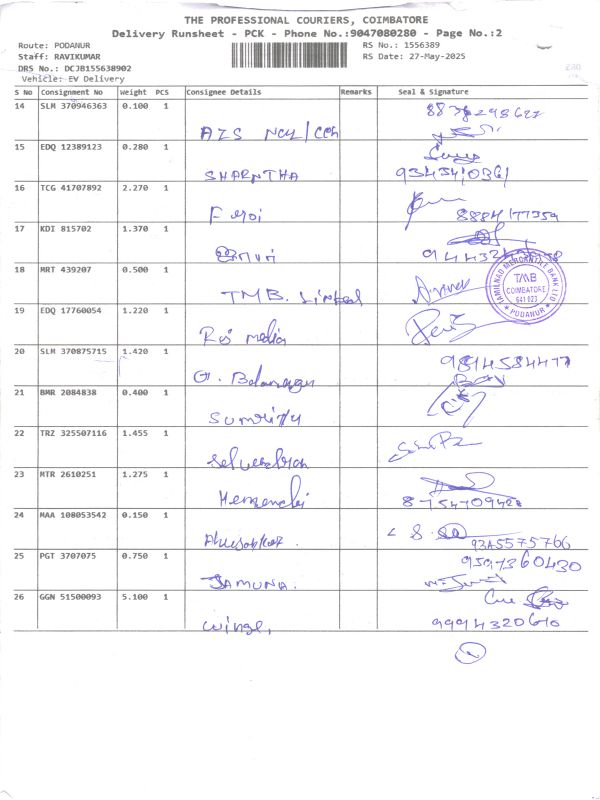 THE PROFESSIONAL COURIERS, COIMBATORE
Delivery Runsheet - PCK - Phone No.:9047080280 - Page No.:2
Route: PODANUR RS No.: 1556389
Staff: RAVIKUMAR RS Date: 27-May-2025
DRS No.: DCJB155638902
Vehicle: EV Delivery
S No Consignment No Weight PCS Consignee Details Remarks Seal & Signature
14 SLM 370946363 0.100 1
15 EDQ 12389123 0.280 1
SHARNTHA
16 TCG 41707892 2.270 1
8884177359
17 KDI 815702 1.370 1
18 MRT 439207 0.500 1
TMB.
TAMILNAD MERCANTILE BANK LTD
TMB
COIMBATORE
641 023
* PODANUR *
19 EDQ 17760054 1.220 1
Roj media
20 SLM 370875715 1.420 1
9894584477
G. Balamagu
21 BMR 2084838 0.400 1
22 TRZ 325507116 1.455 1
23 MTR 2610251 1.275 1
8754709428
24 MAA 108053542 0.150 1
25 PGT 3707075 0.750 1
9597360430
JAMUNA.
26 GGN 51500093 5.100 1
9994320610